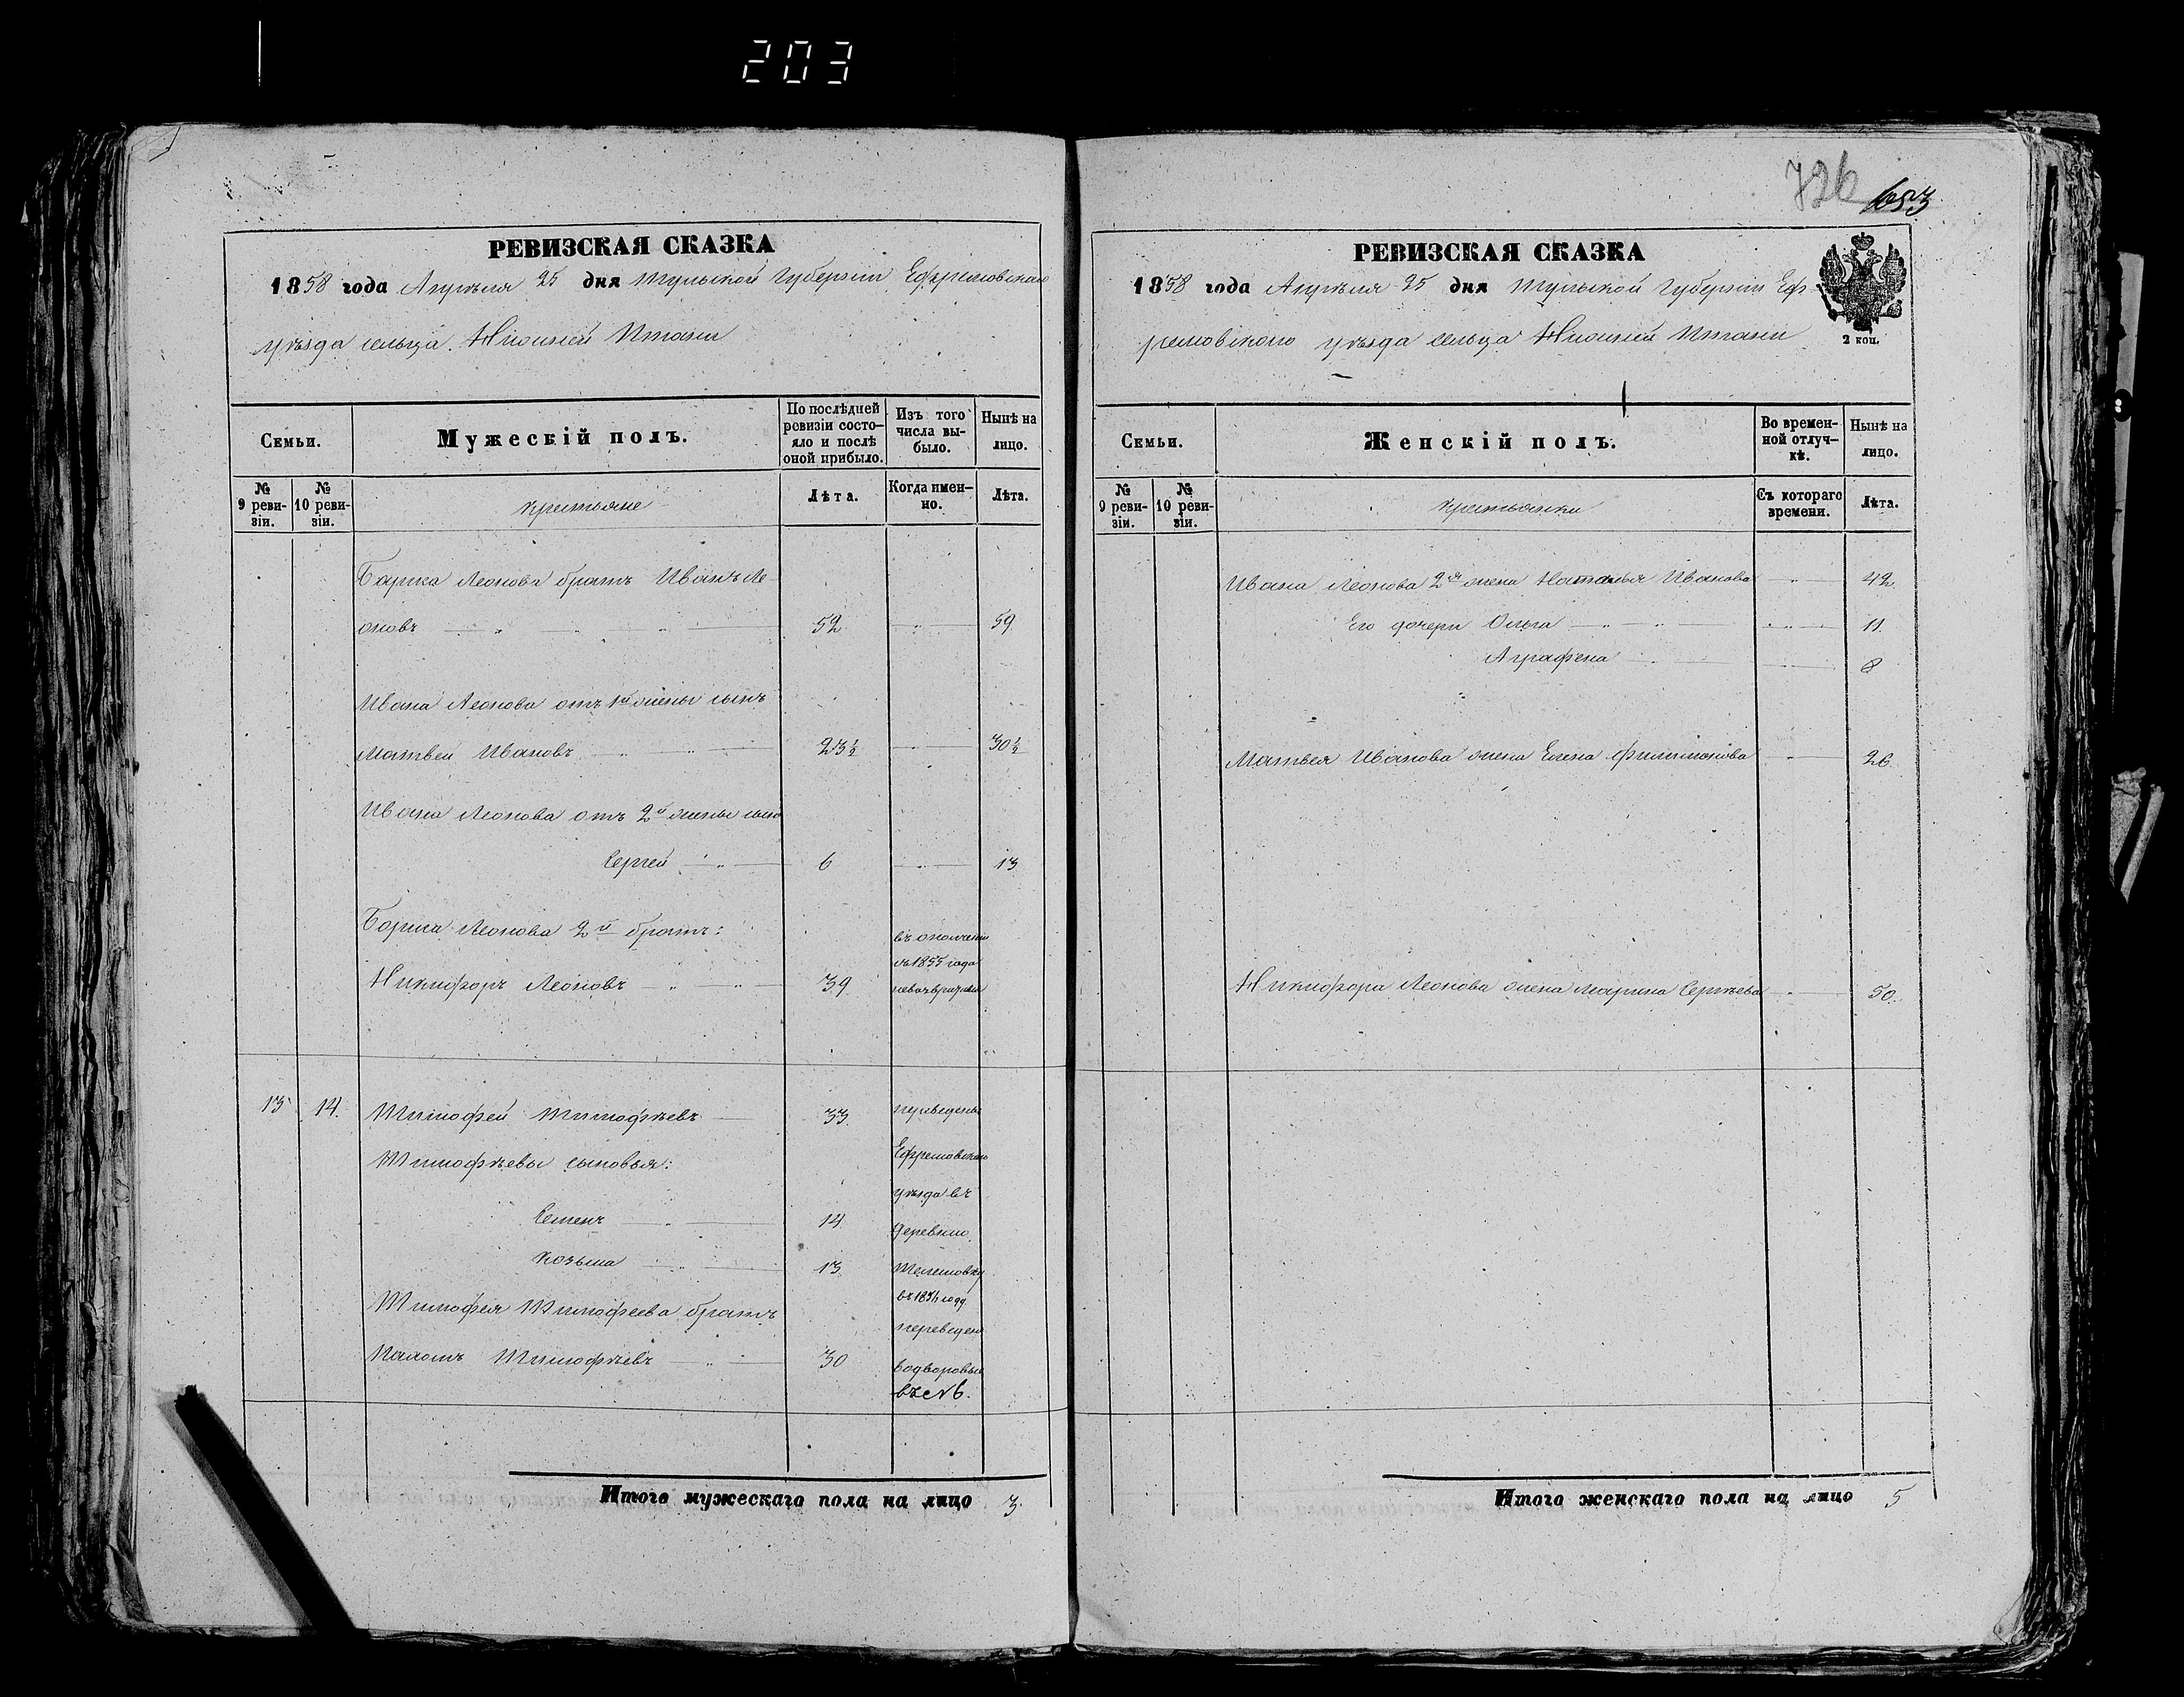 203
726
653
РЕВИЗСКАЯ СКАЗКА
1858 года Апрѣля 25 дня Тульской Губерніи Ефремовскаго
уѣзда сельца Нижней
Семьи.
Мужескій полъ.
По послѣдней ревизіи состояло и послѣ оной прибыло.
Изъ того числа выбыло.
Нынѣ на лицо.
№ 9 ревизіи.
№ 10 ревизіи.
крестьяне
Лѣта.
Когда именно.
Лѣта.
Леонова братъ Иванъ Ле-
оновъ 52 59
Ивана Леонова отъ 1й жены сынъ
Матвей Ивановъ 23½ 30½
Ивана Леонова отъ 2й жены сынъ
Сергей 6 13
Леонова 2й братъ:
Никифоръ Леоновъ 39
въ ополченіи
съ 1855 года
13 14. Тимофей Тимофѣевъ 33.
Тимофѣевы сыновья:
Семенъ 14
Козьма 13
Тимофея Тимофеева братъ
Тимофѣевъ 30
переведены
Ефремовскаго
уѣзда въ
деревню
переведенъ
Итого мужескаго пола на лицо 3.
РЕВИЗСКАЯ СКАЗКА
1858 года Апрѣля 25 дня Тульской Губерніи Еф-
ремовскаго уѣзда сельца Нижней
2 коп.
Семьи.
Женскій полъ.
Во временной отлучкѣ.
Нынѣ на лицо.
№ 9 ревизіи.
№ 10 ревизіи.
крестьянки
Съ котораго времени.
Лѣта.
Ивана Леонова 2я жена Наталья Иванова 42.
Его дочери Ольга 11.
Аграфена 8
Матвея Иванова жена Елена Филимонова 26.
Никифора Леонова жена Марина Сергѣева 50.
Итого женскаго пола на лицо 5